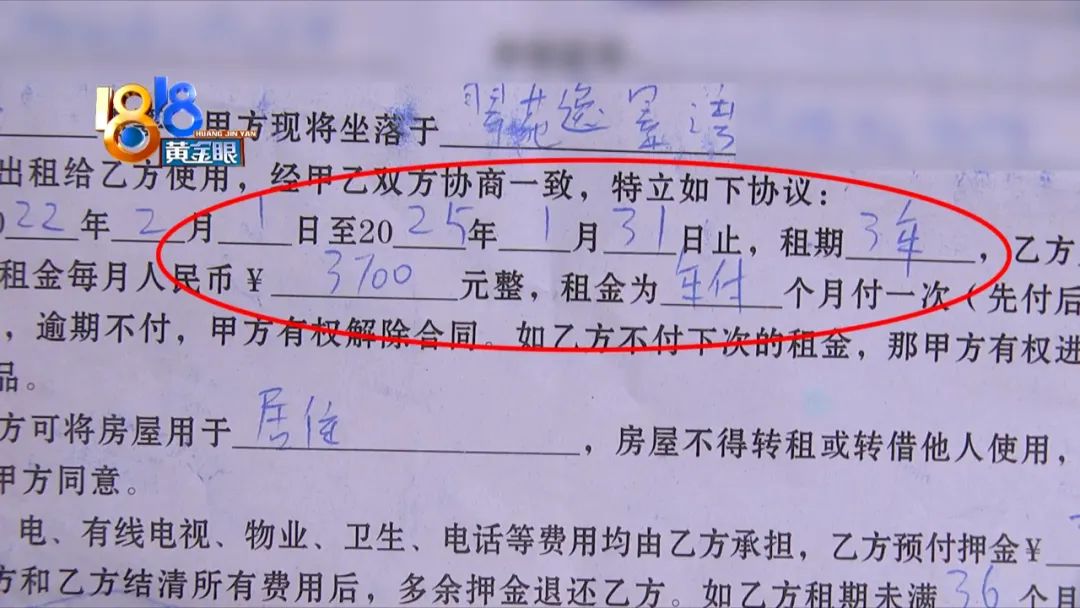 1818
HUANG JIN YAN
黄金眼
甲方现将坐落于
出租给乙方使用，经甲乙双方协商一致，特立如下协议：
22年2月1日至2025年1月31日止，租期3年，乙方
租金每月人民币￥3700元整，租金为年付个月付一次（先付后
，逾期不付，甲方有权解除合同。如乙方不付下次的租金，那甲方有权进
品。
方可将房屋用于居住，房屋不得转租或转借他人使用，
甲方同意。
电、有线电视、物业、卫生、电话等费用均由乙方承担，乙方预付押金￥
方和乙方结清所有费用后，多余押金退还乙方。如乙方租期未满36个月